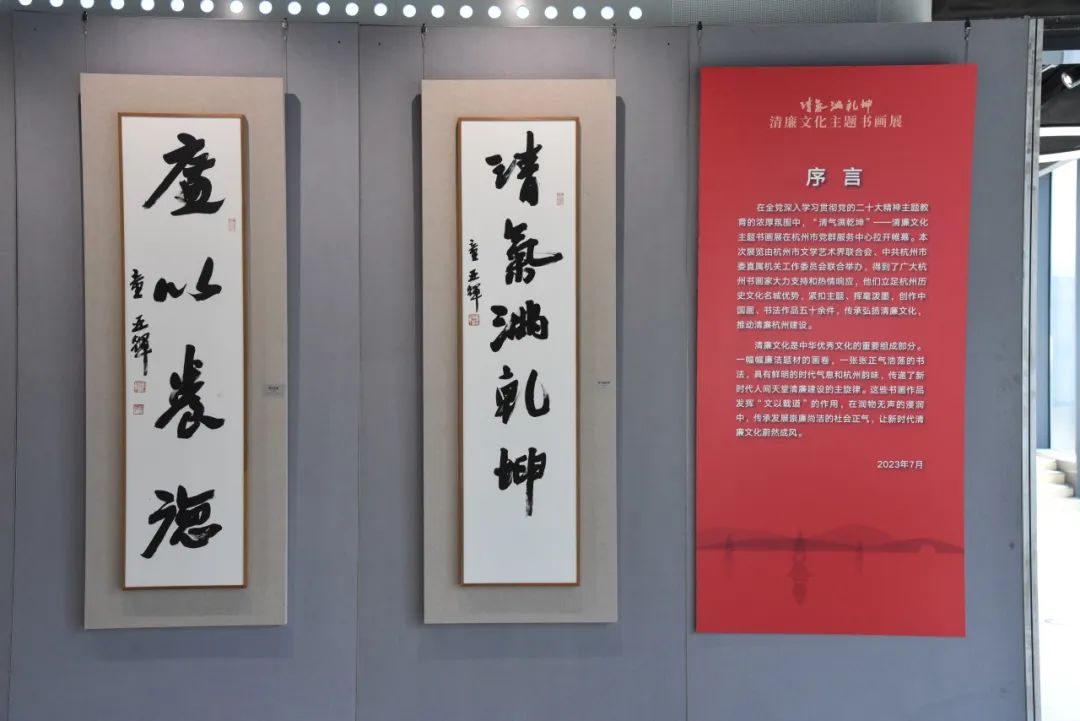 廉以養德
童亚輝
清氣滿乾坤
童亚輝
清氣滿乾坤
清廉文化主题书画展
序言
在全党深入学习贯彻党的二十大精神主题教
育的浓厚氛围中，“清气满乾坤”——清廉文化
主题书画展在杭州市党群服务中心拉开帷幕。本
次展览由杭州市文学艺术界联合会、中共杭州市
委直属机关工作委员会联合举办，得到了广大杭
州书画家大力支持和热情响应，他们立足杭州历
史文化名城优势，紧扣主题、挥毫泼墨，创作中
国画、书法作品五十余件，传承弘扬清廉文化，
推动清廉杭州建设。
清廉文化是中华优秀文化的重要组成部分。
一幅幅廉洁题材的画卷，一张张正气浩荡的书
法，具有鲜明的时代气息和杭州韵味，传递了新
时代人间天堂清廉建设的主旋律。这些书画作品
发挥“文以载道”的作用，在润物无声的浸润
中，传承发展崇廉尚洁的社会正气，让新时代清
廉文化蔚然成风。
2023年7月